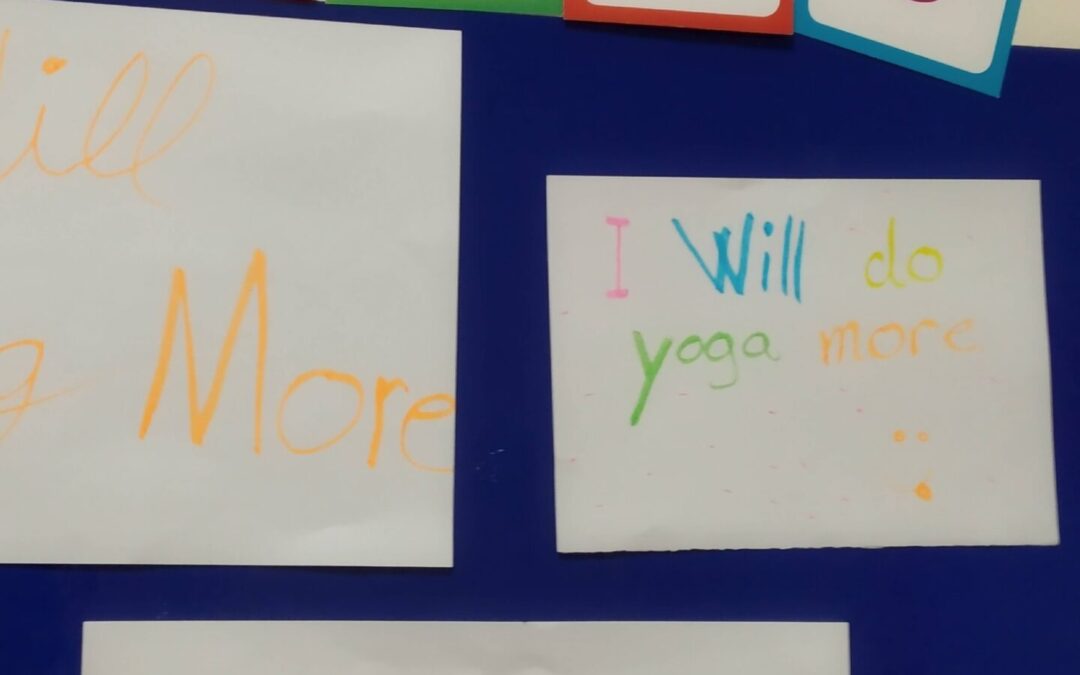 ill
g More
I Will do
yoga more